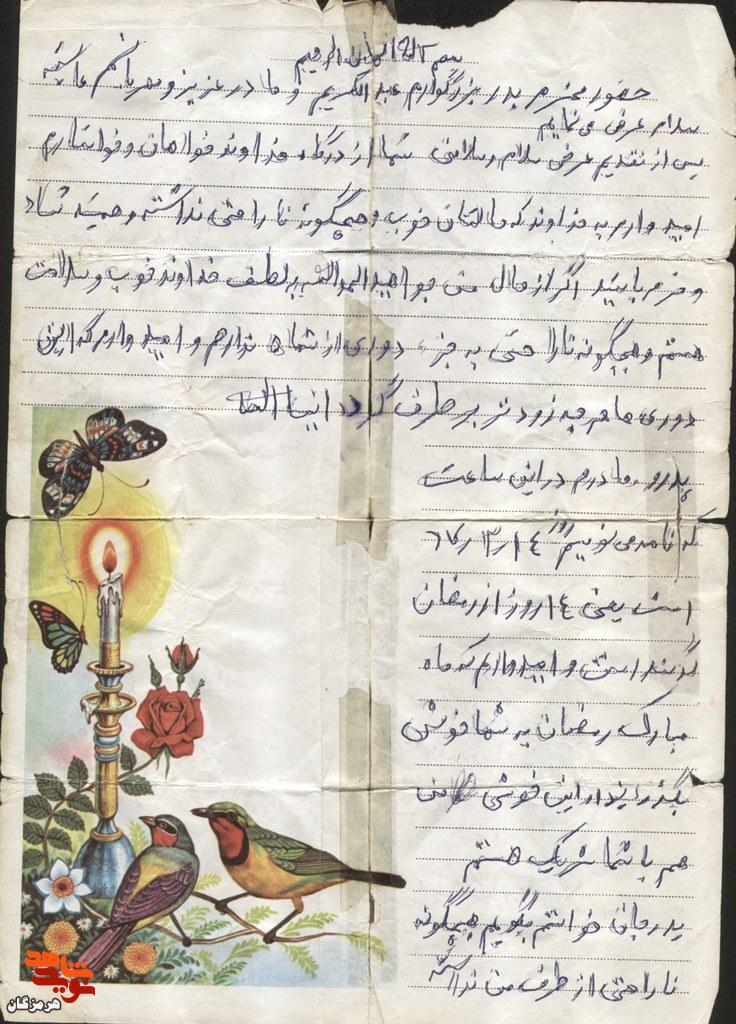 بسم الله الرحمن الرحیم
حضور محترم پدر بزرگوارم عبدالکریم و مادر عزیز و مهربانم
سلام عرض می نمایم
پس از تقدیم عرض سلام سلامتی شما از درگاه خداوند خواهان و خواستارم
امید وارم به خداوند که حالتان خوب و هیچگونه ناراحتی نداشته و همیشه شاد
و خرم باشید اگر از حال من جویا هستید الحمدالله به لطف خداوند خوب و سلامت
هستم و هیچگونه ناراحتی به جزء دوری از شماها ندارم و امید وارم که این
دوری هم چه زودتر بر طرف گردد انشا الله
پدر و مادرم در این ساعت
که نامه می نویسم روز ١٤ر٣ر
است یعنی ١٤ روز از رمضان
گذشته است و امید وارم که ماه
مبارک رمضان به شما خوش
بگذرد این خوشی من
هم با شما شریک هستم
پدر جان خواستم بگویم هیچگونه
ناراحتی از طرف من نداشته
نوید شاهد
هرمزگان